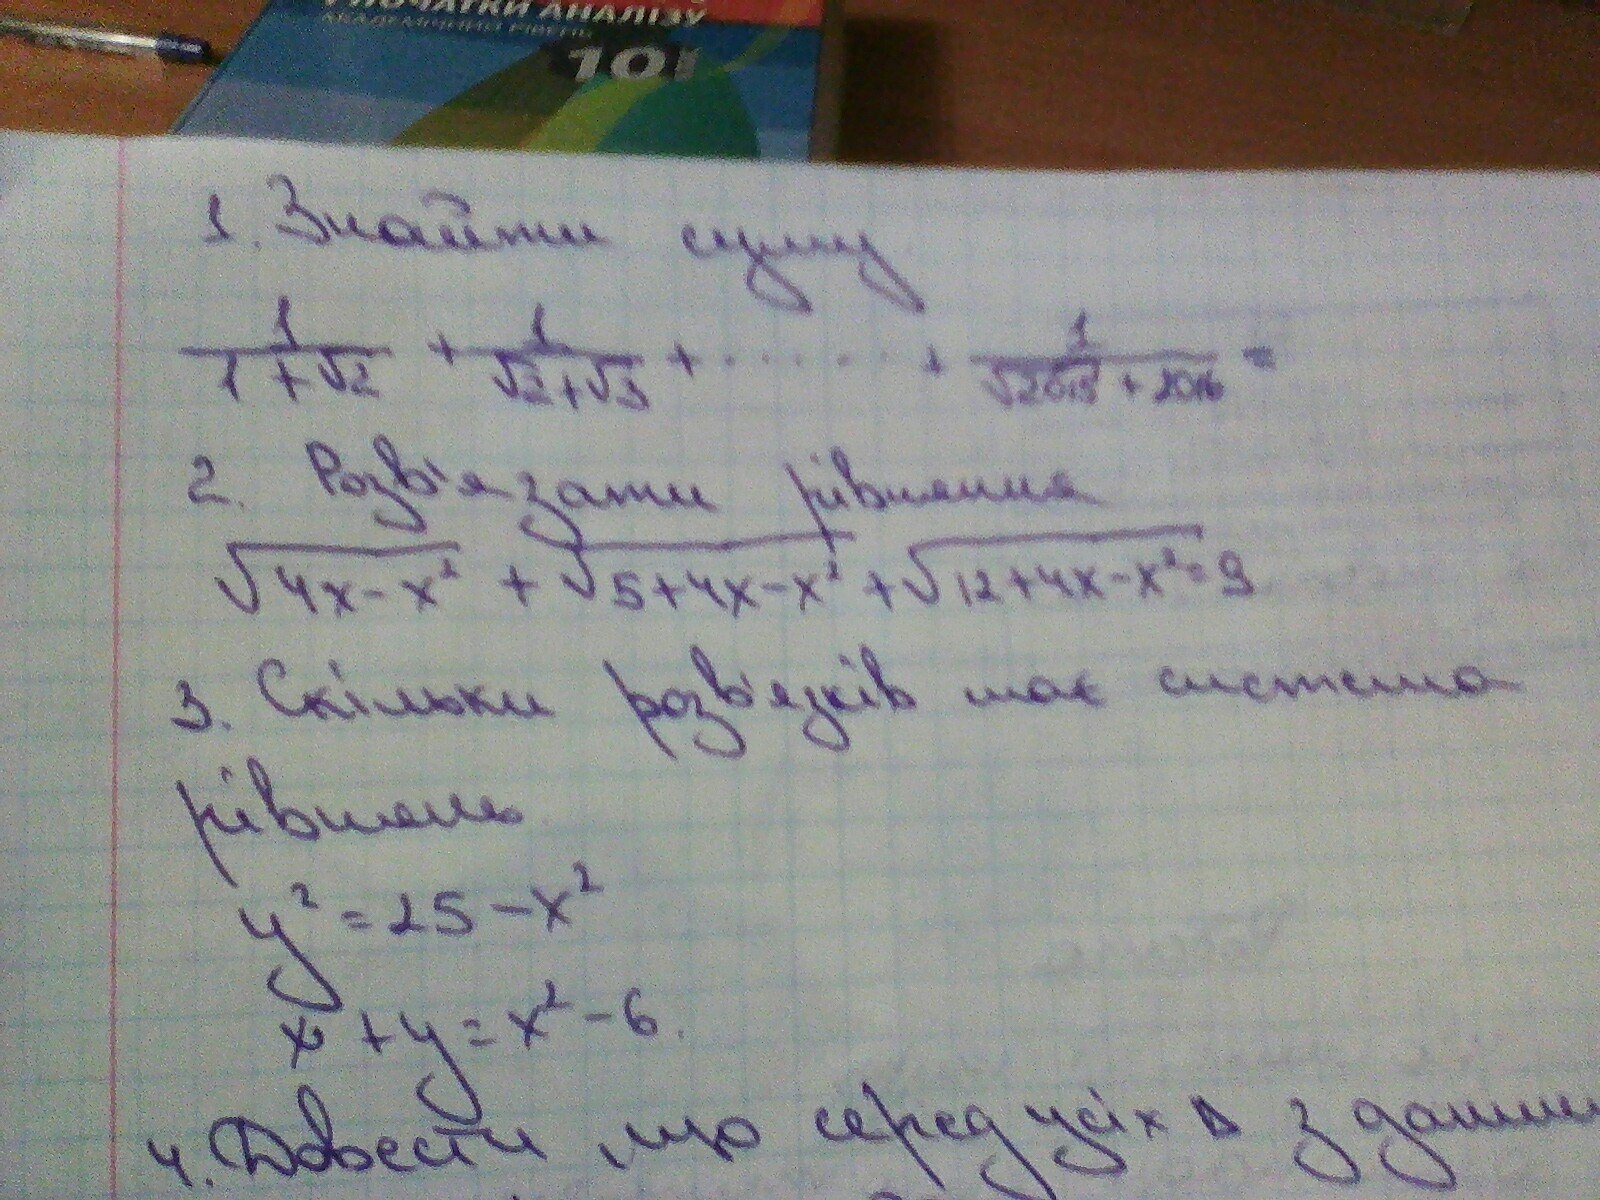 І ПОЧАТКИ АНАЛІЗУ
АКАДЕМІЧНИЙ РІВЕНЬ
10
1. Знайти суму
1/(1+√2) + 1/(√2+√3) + ...... + 1/(√2015 + 2016) =
2. Розв'язати рівняння
√(4x-x²) + √(5+4x-x²) + √(12+4x-x²) = 9
3. Скільки розв'язків має система
рівнянь
y² = 25 - x²
x + y = x² - 6.
4. Довести, що серед усіх Δ з даним